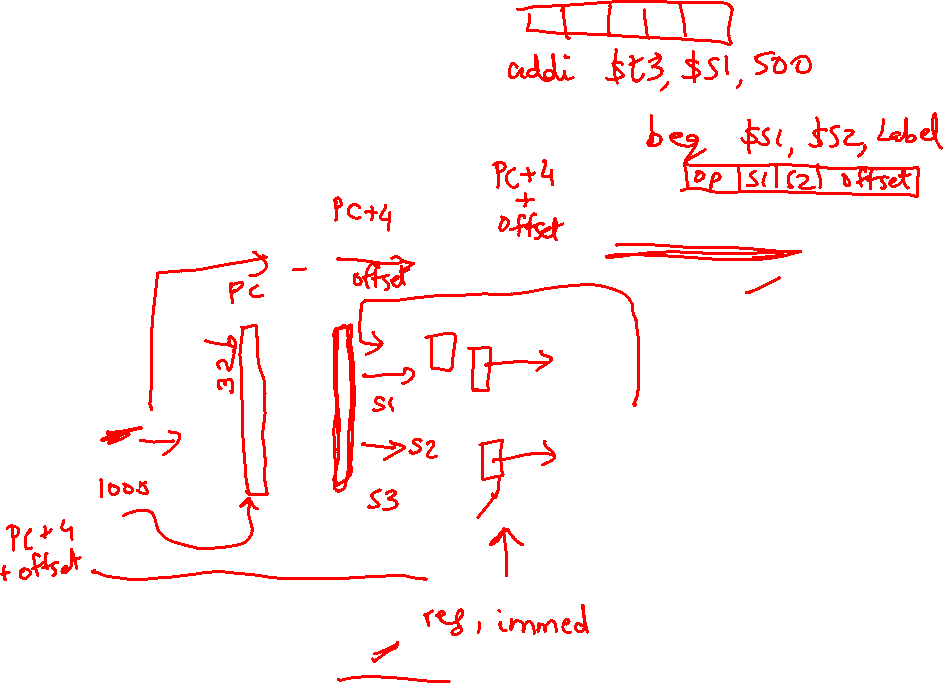 addi $t3, $s1, 500
beq $s1, $s2, Label
op s1 s2 offset
PC+4
+
offset
PC+4
offset
PC
32
s1
s2
s3
PC+4
+ offset
reg, immed